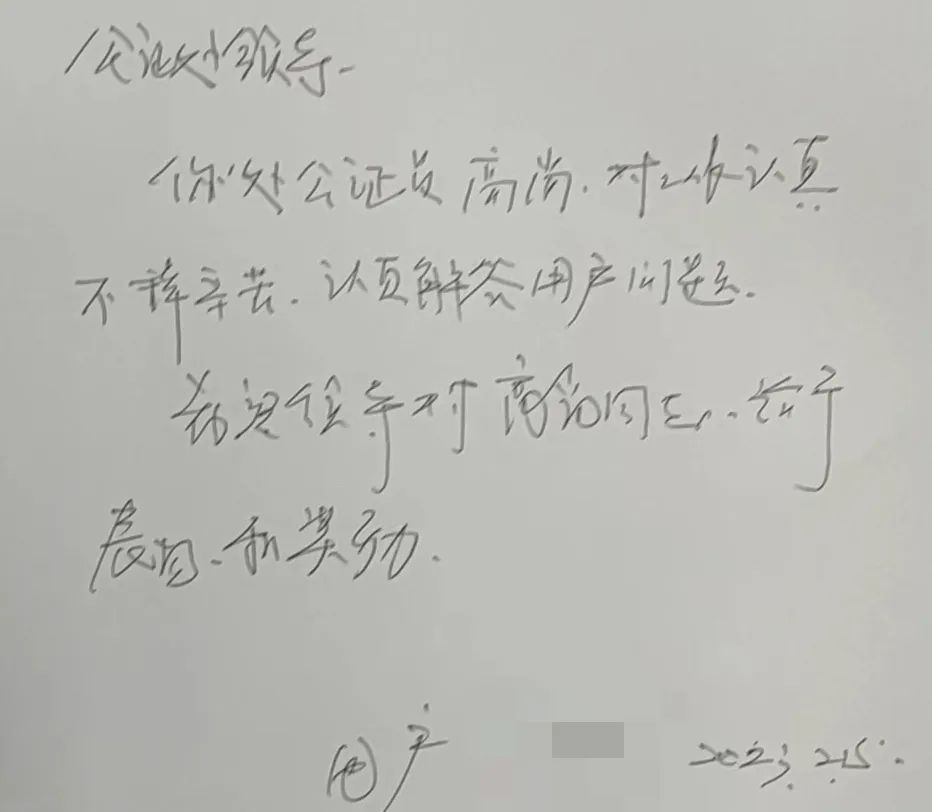 公证处领导.
你处公证员高尚.对工作认真
不辞辛苦.认真解答用户问题.
希望领导对高尚同志.给予
表扬.和奖励.
用户 2023.2.15.